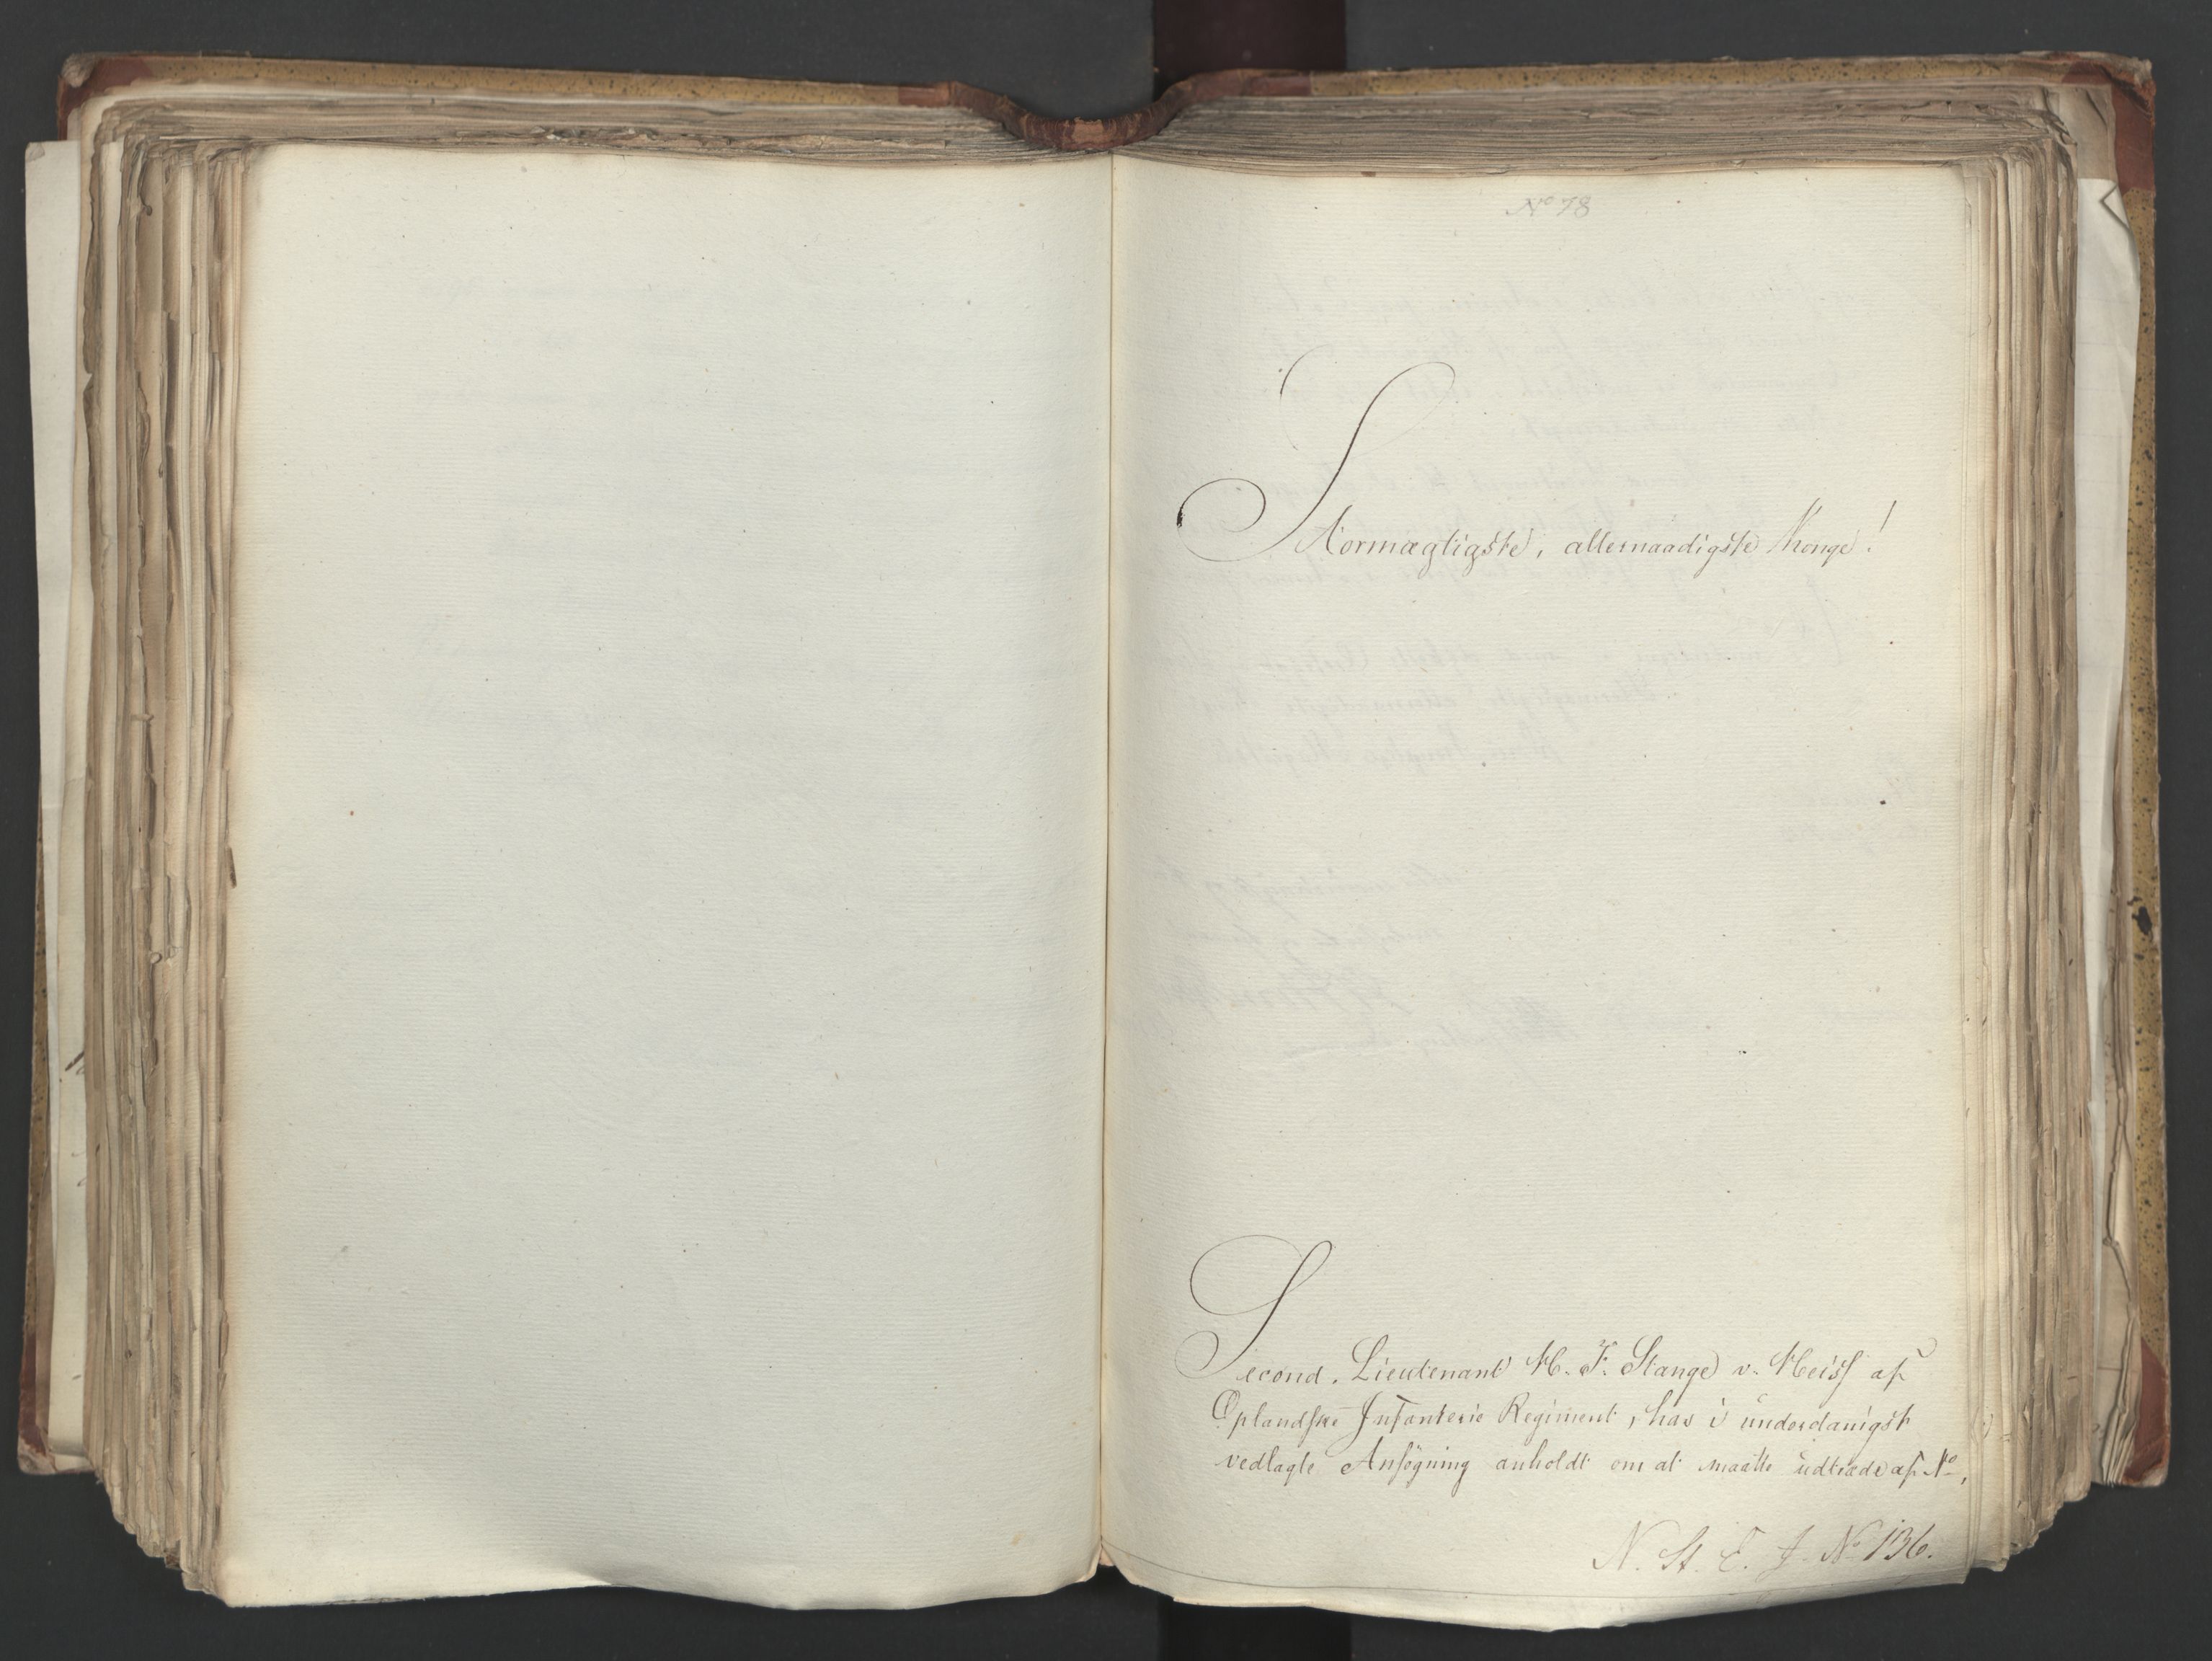 No 78
Stormægtigste, allernaadigste Konge!
Second-Lieutenant M. F. Stange v. Meiss af
Oplandske Infanterie Regiment, har i underdanigst
vedlagte Ansøgning anholdt om at maatte udtræde af No,
N. St. E. J. No 136.